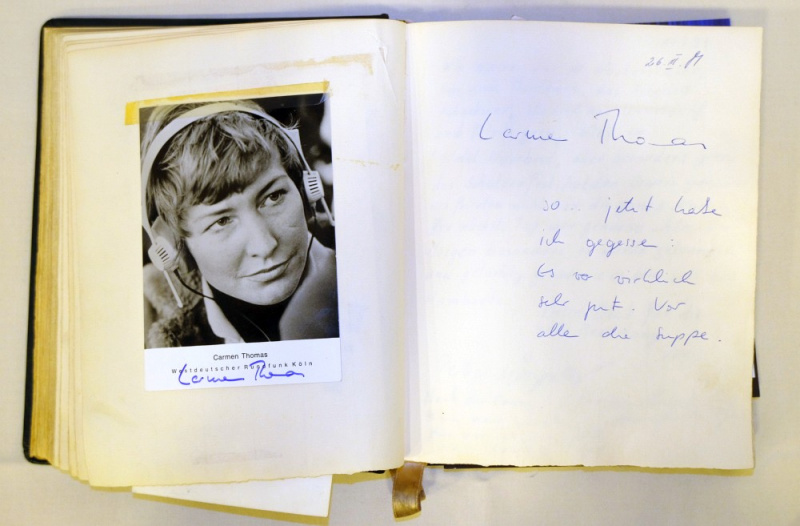 Carmen Thomas
Westdeutscher Rundfunk Köln
Carmen Thomas
26. II
Carmen Thomas
so... jetzt habe
ich gegessen:
Es war wirklich
sehr gut. Vor
allem die Suppe.